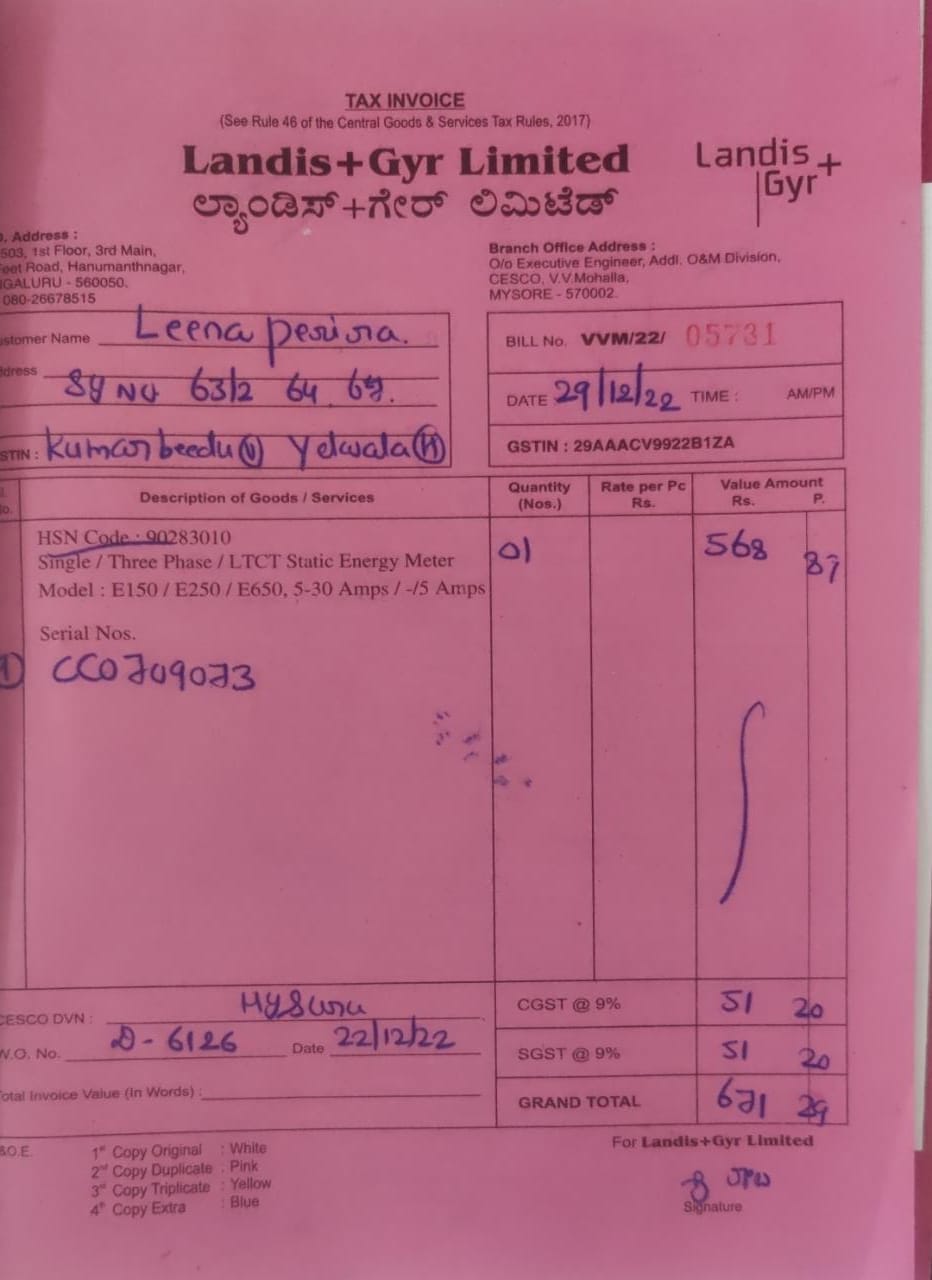 TAX INVOICE
(See Rule 46 of the Central Goods & Services Tax Rules, 2017)
Landis+Gyr Limited
ಲ್ಯಾಂಡಿಸ್+ಗೇರ್ ಲಿಮಿಟೆಡ್
Landis
Gyr+
. Address :
503, 1st Floor, 3rd Main,
eet Road, Hanumanthnagar,
GALURU - 560050.
080-26678515
Branch Office Address :
O/o Executive Engineer, Addl. O&M Division,
CESCO, V.V.Mohalla,
MYSORE - 570002.
stomer Name Leena perira.
dress Sy No 63/2 64 67.
STIN : Kumarbeedu (V) Yelwala (H)
BILL No. VVM/22/ 05731
DATE 29/12/22 TIME : AM/PM
GSTIN : 29AAACV9922B1ZA
Description of Goods / Services Quantity (Nos.) Rate per Pc Rs. Value Amount Rs. P.
HSN Code : 90283010
Single / Three Phase / LTCT Static Energy Meter 01 568 87
Model : E150 / E250 / E650, 5-30 Amps / -/5 Amps
Serial Nos.
1 CC0709073
CESCO DVN : Mysuru
CGST @ 9% 51 20
W.O. No. D - 6126 Date 22/12/22
SGST @ 9% 51 20
Total Invoice Value (In Words) :
GRAND TOTAL 671 29
&O.E.
1st Copy Original : White
2nd Copy Duplicate : Pink
3rd Copy Triplicate : Yellow
4th Copy Extra : Blue
For Landis+Gyr Limited
Signature